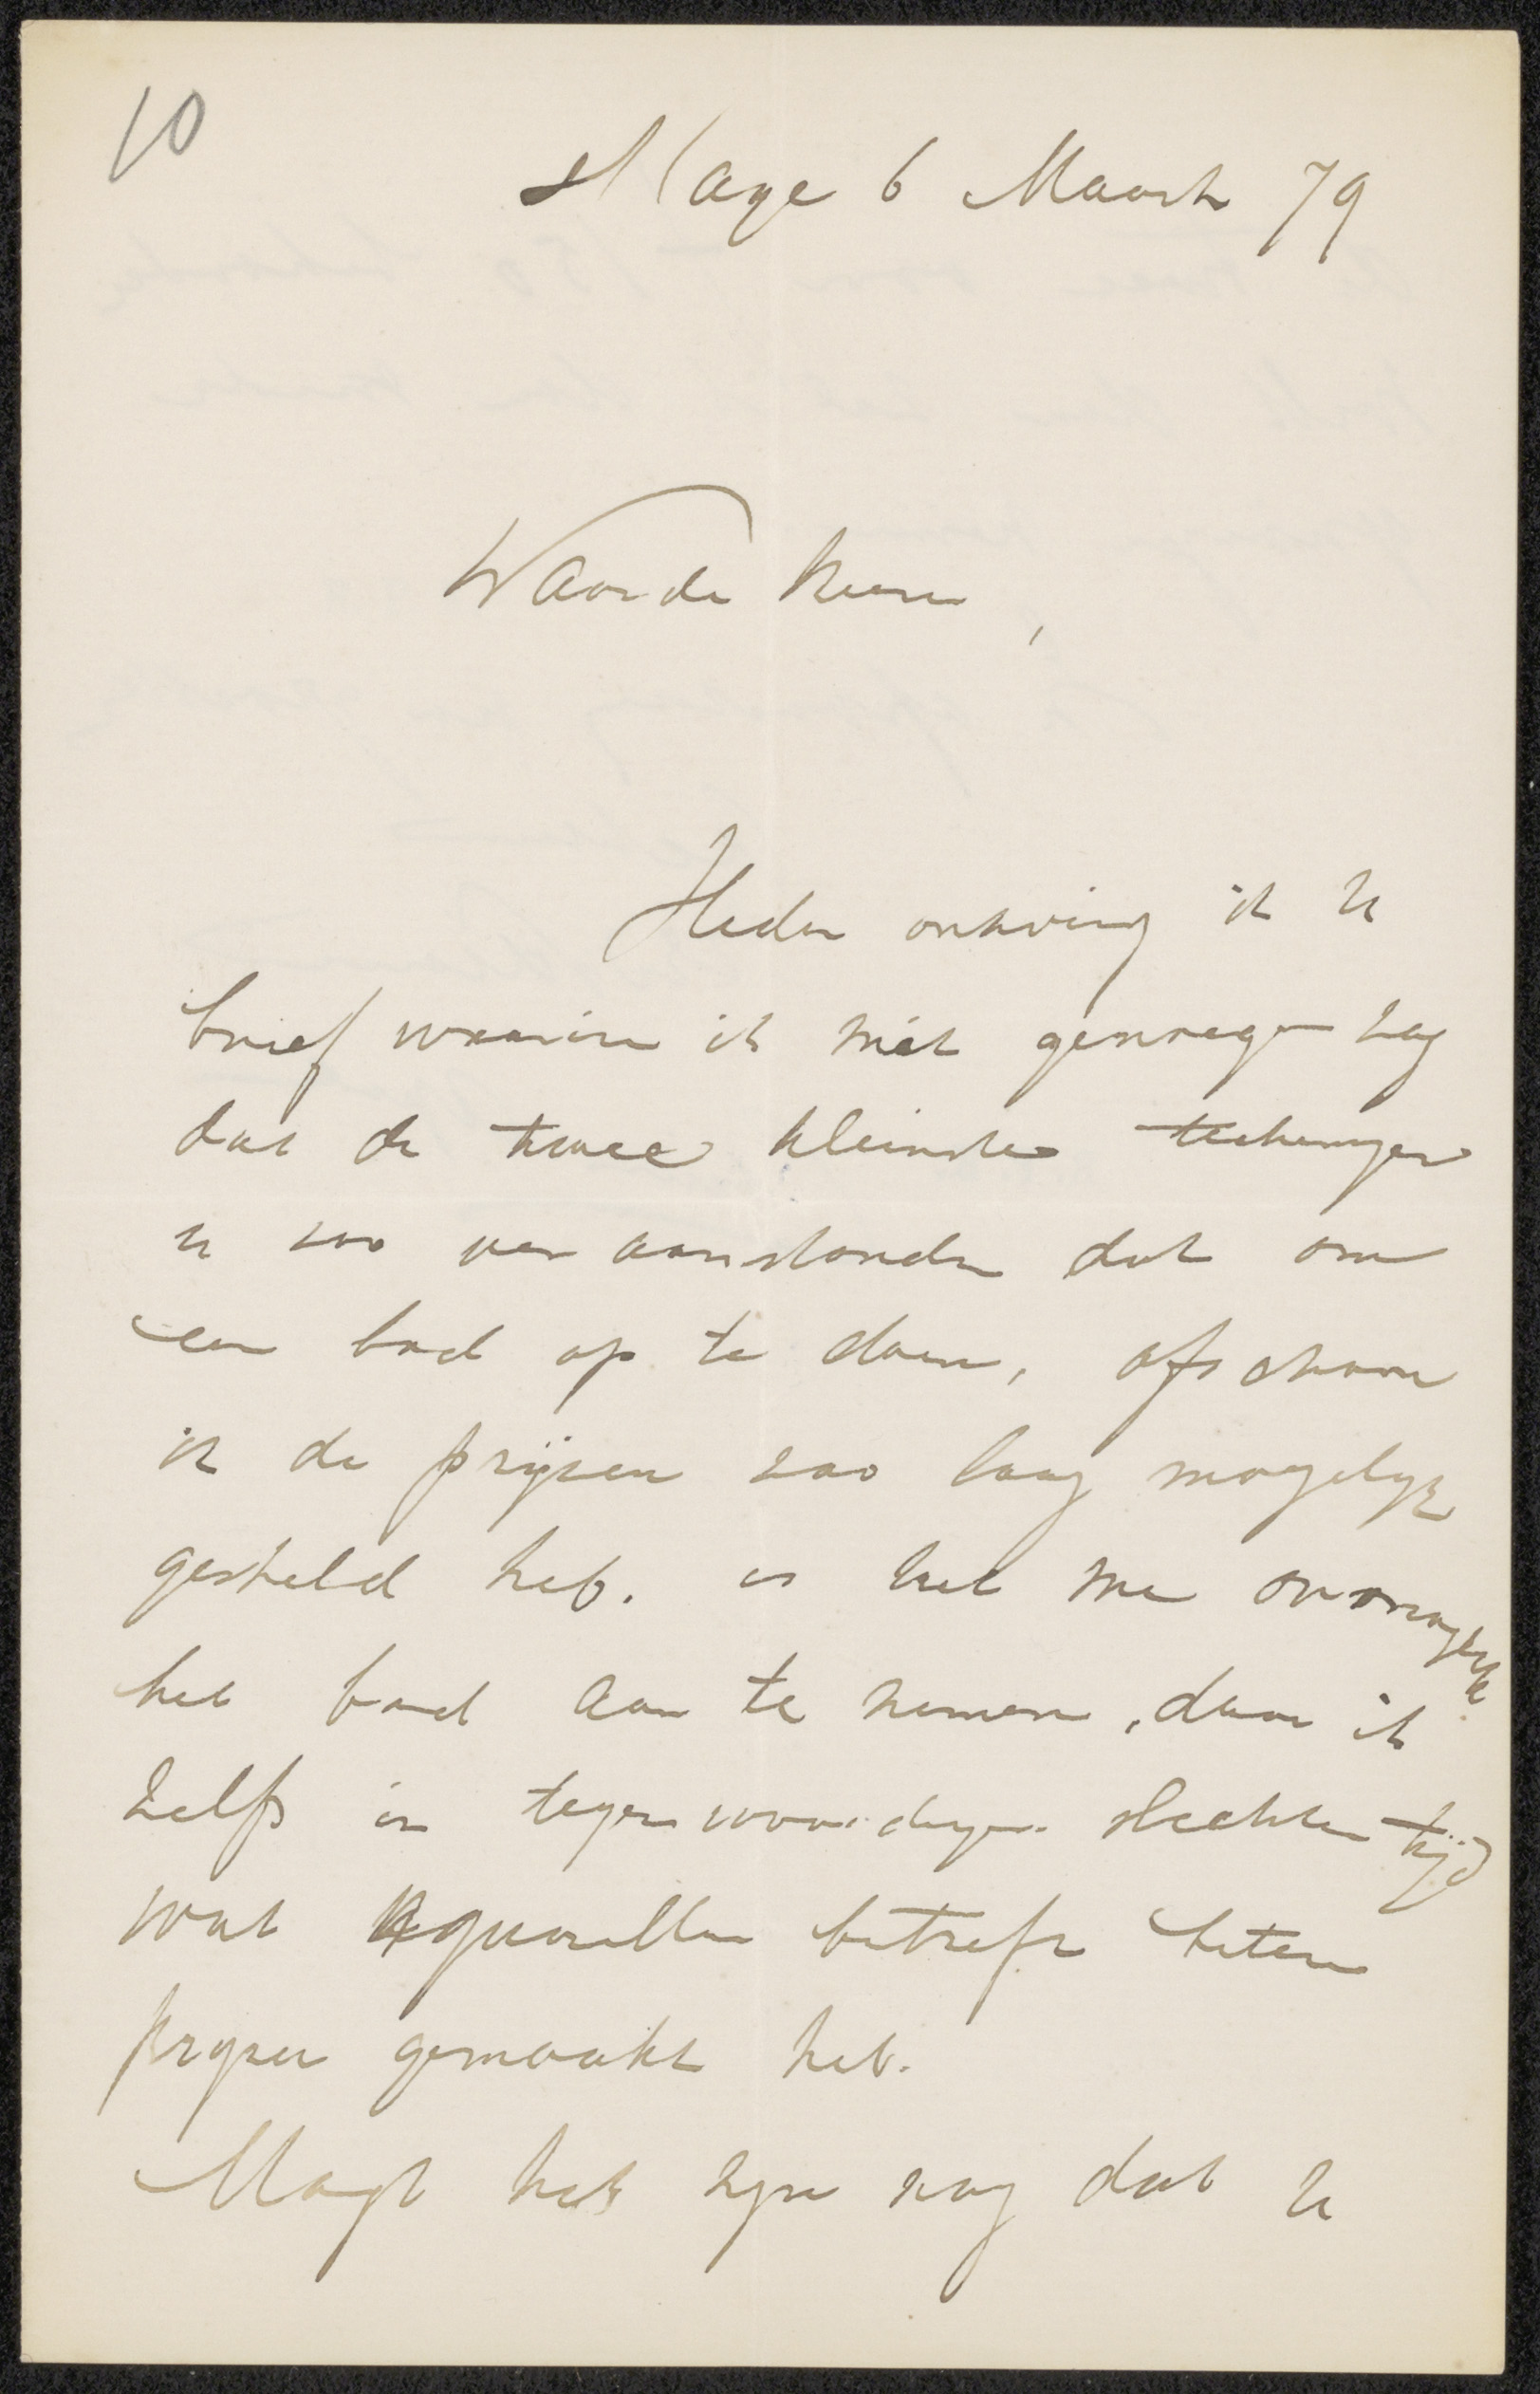 10
s'Hage 6 Maart 79
Waarde heer,
Heden ontving ik U
brief waarin ik met genoegen zag
dat de twee kleinste teekeningen
u zoo aanstonden dat om
een bod op te doen, ofschoon
ik de prijzen zoo laag mogelijk
gesteld heb. is het me onmogelijk
het bod aan te nemen, daar ik
zelfs in tegenwoordigen slechten tijd
wat Aquarellen betreft betere
prijzen gemaakt heb.
Mogt het zijn nog dat U